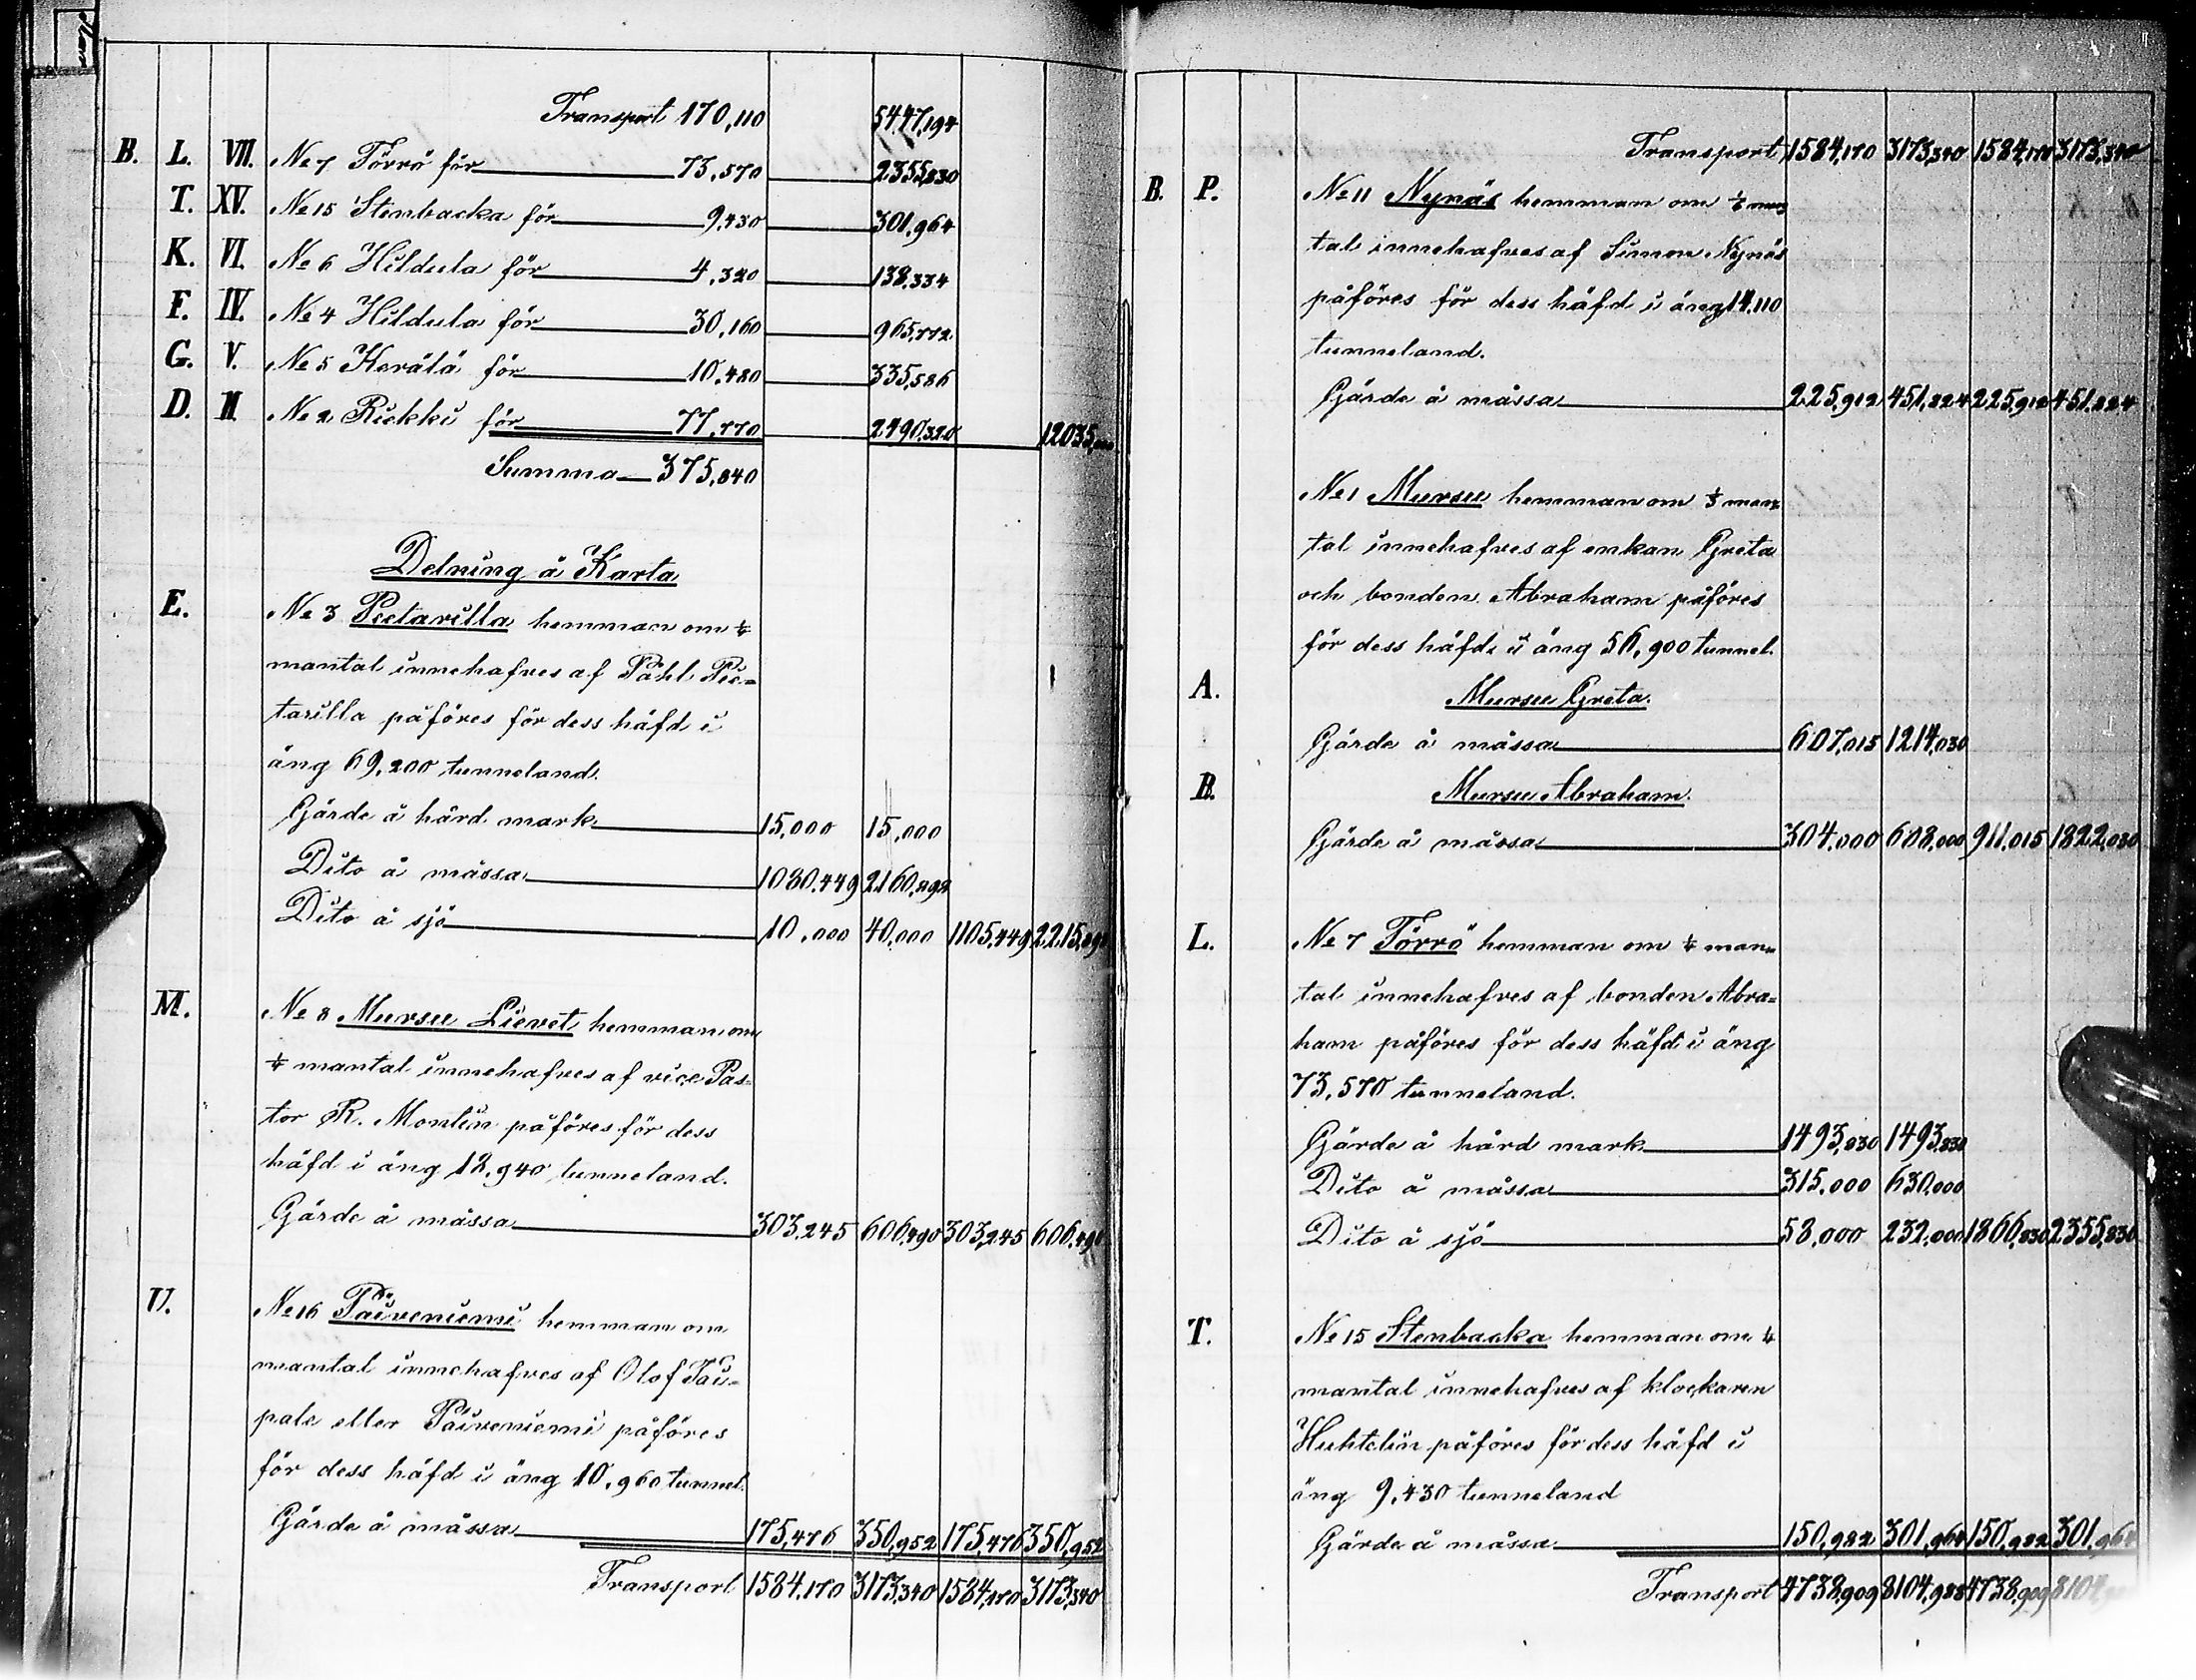 Transport 170,110 5447,194
B. L. VII. No 7 Törrö för 73,570 2355,830
T. XV. No 15 Stenbacka för 9,430 301,964
K. VI. No 6 Hildula för 4,320 138,334
F. IV. No 4 Hildula för 30,160 965,772
G. V. No 5 Kerälä för 10,480 335,586
D. II. No 2 Riekki för 77,770 2490,320 12035,000
Summa 375,840
Delning å Karta
E. No 3 Pietarilla hemman om ¼
mantal innehafves af Påhl Pie=
tarilla påföres för dess häfd i
äng 69,200 tunneland.
Gärde å hård mark 15,000 15,000
Dito å måssa 1080,449 2160,898
Dito å sjö 10,000 40,000 1105,449 2215,898
M. No 8 Mursu Lievet hemman om
¼ mantal innehafves af vice Pas-
tor R. Montin påföres för dess
häfd i äng 12,940 tunneland.
Gärde å måssa 303,245 606,490 303,245 606,490
U. No 16 Päiveniemi hemman om
mantal innehafves af Olof Tai-
pale eller Päiveniemi påföres
för dess häfd i äng 10,960 tunnel.
Gärde å måssa 175,476 350,952 175,476 350,952
Transport 1584,170 3173,340 1584,170 3173,340
Transport 1584,170 3173,340 1584,170 3173,340
B. P. No 11 Nynäs hemman om man
tal innehafves af Simon Nynäs
påföres för dess häfd i äng 14,110
tunneland.
Gärde å måssa 225,912 451,824 225,912 451,824
No 1 Mursu hemman om man
tal innehafves af enkan Greta
och bonden Abraham påföres
för dess häfd i äng 56,900 tunnel.
A. Mursu Greta.
Gärde å måssa 607,015 1214,030
B. Mursu Abraham.
Gärde å måssa 304,000 608,000 911,015 1822,030
L. No 7 Törrö hemman om ¼ man-
tal innehafves af bonden Abra=
ham påföres för dess häfd i äng
73,570 tunneland.
Gärde å hård mark 1493,830 1493,830
Dito å måssa 315,000 630,000
Dito å sjö 58,000 232,000 1866,830 2355,830
T. No 15 Stenbacka hemman om ¼
mantal innehafves af klockaren
Huhtelin påföres för dess häfd i
äng 9,430 tunneland
Gärde å måssa 150,982 301,964 150,982 301,964
Transport 4738,909 8104,988 4738,909 8104